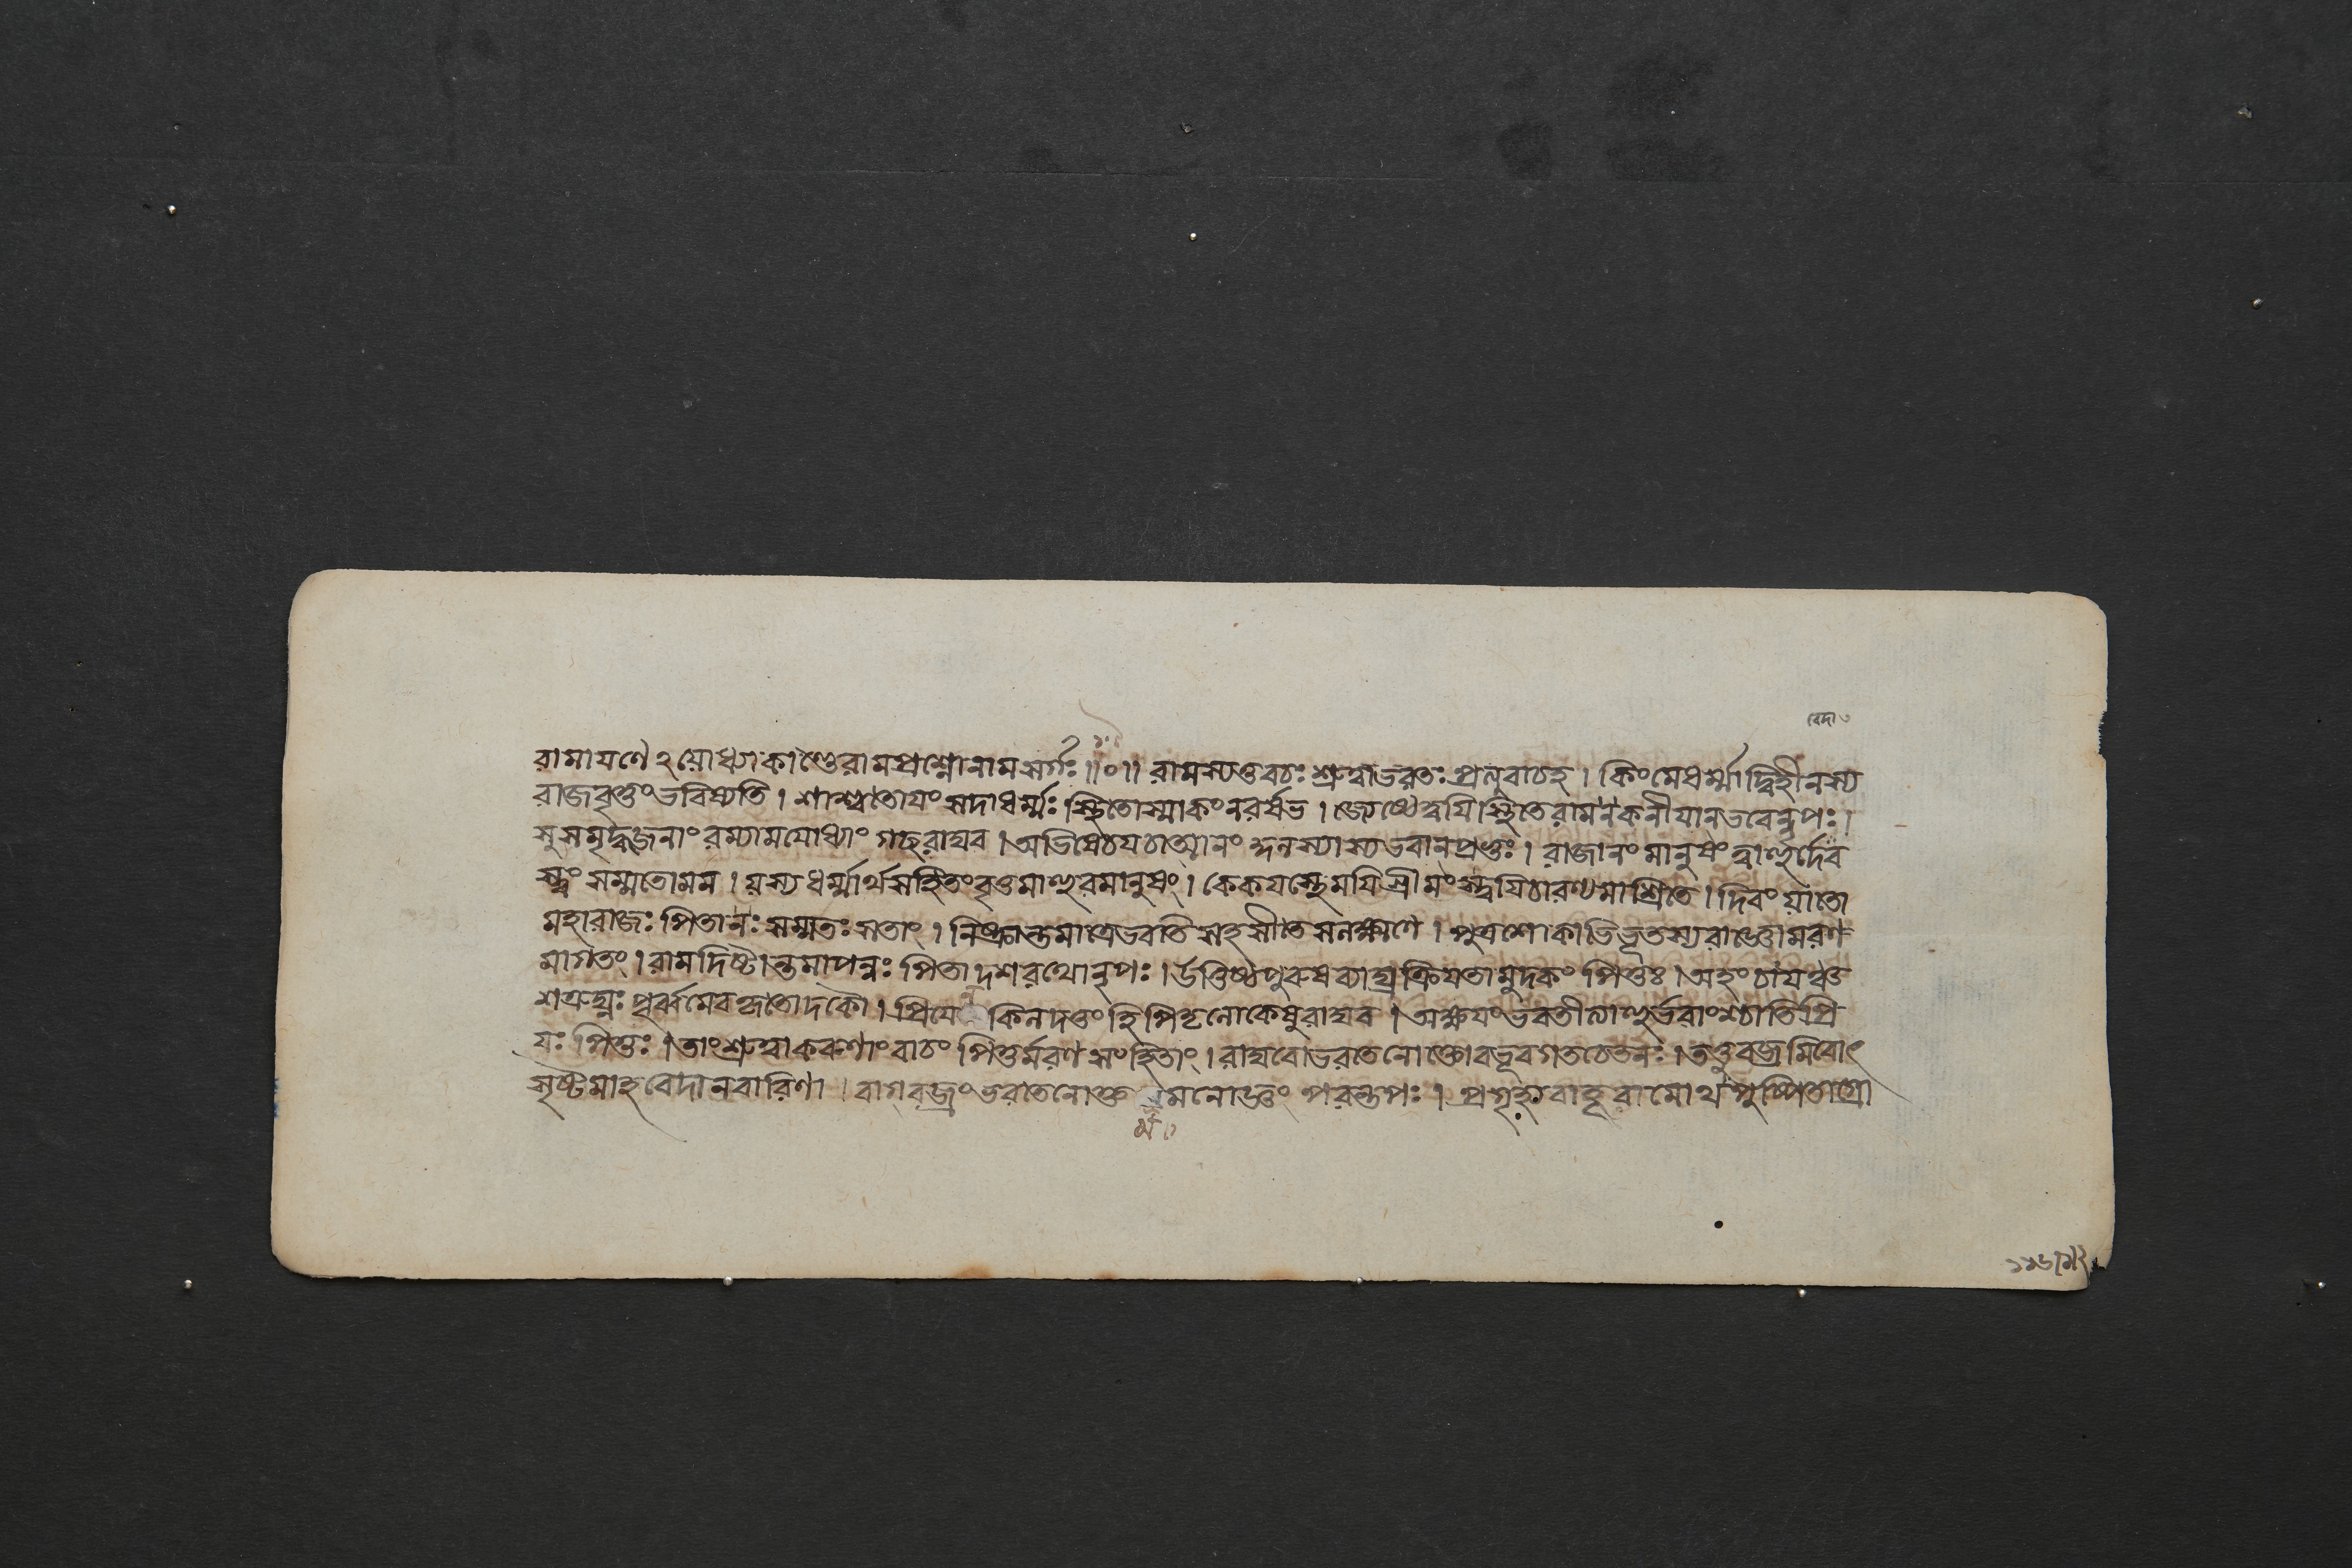 বেদা৩
রামাযণে২যোধ্যাকাণ্ডেরামপ্রশ্নোনামসর্গঃ॥০॥ রামস্যতুবচঃ শ্রুত্বাভরতঃ প্রত্যুবাচহ। কিংমেধর্ম্মাদ্বিহীনস্য
রাজবৃত্তংভবিষ্যতি। শাশ্বতোযংসদাধর্ম্মঃ স্থিতোস্মাকংনরর্ষভ। জ্যেষ্ঠেত্বযিস্থিতেরামনকনীযানভবেন্নৃপঃ।
সুসমৃদ্ধজনাংরম্যামযোধ্যাংগচ্ছরাঘব। অভিষেচযচাত্মানংকুলস্যাস্যভবানপ্রভুঃ। রাজানংমানুষংপ্রাহুর্দেব
স্ত্বংসম্মতোমম। যস্যধর্ম্মার্থসহিতংবৃত্তমাহুরমানুষং। কেকযস্থেমযিশ্রীমংস্ত্বযিচারণ্যমাশ্রিতে। দিবংযাতো
মহারাজঃ পিতানঃ সম্মতঃ সতাং। নিষ্ক্রান্তমাত্রেভবতিসহসীতেসলক্ষ্মণে। পুত্রশোকাভিভূতস্যরাজ্ঞোমরণ
মাগতং। রামদিষ্টান্তমাপন্নঃ পিতাদশরথোনৃপঃ। উত্তিষ্ঠপুরুষব্যাঘ্রক্রিযতামুদকংপিতুঃ। অহংচাযঞ্চ
শত্রুঘ্নঃ পূর্ব্বমেবকৃতোদকৌ। প্রিযে কিলদত্তংহিপিতৃলোকেষুরাঘব। অক্ষযংভবতীত্যাহুর্ভবাংশ্চাতিপ্রি
যঃ পিতুঃ। তাংশ্রুত্বাকরুণাংবাচংপিতুর্মরণসংহিতাং। রাঘবোভরতেনোক্তোবভূবগতচেতনঃ। তত্তুবজ্রমিবোৎ
সৃষ্টমাহবেদানবারিণা। বাগ্‌বজ্রংভরতেনোক্ত মনোজ্ঞংপরন্তপঃ। প্রগৃহ্যবাহূরামোথপুষ্পিতাগ্রো